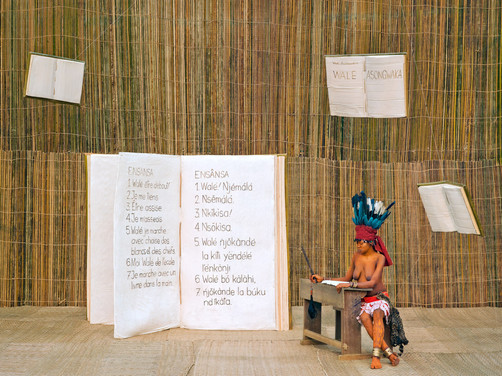 WALE ASONGWAKA
ENSANSA
1. Walé être debout!
2. Je me tiens
3. Être assise
4. Je m'assieds
5. Walé je marche
avec chaise des
blancs et des chefs
6. Moi Walé de
7. Je marche avec un
livre dans la main.
ENSÂNSA
1. Walé! Njémálá
2. Nsémálá.
3. Nkikisa!
4. Nsôkisa
5. Walé njôkàndé
la kiti yèndélé
6. Walé bó kàlàhi,
7. njôkànde la búku
nd íkáta.